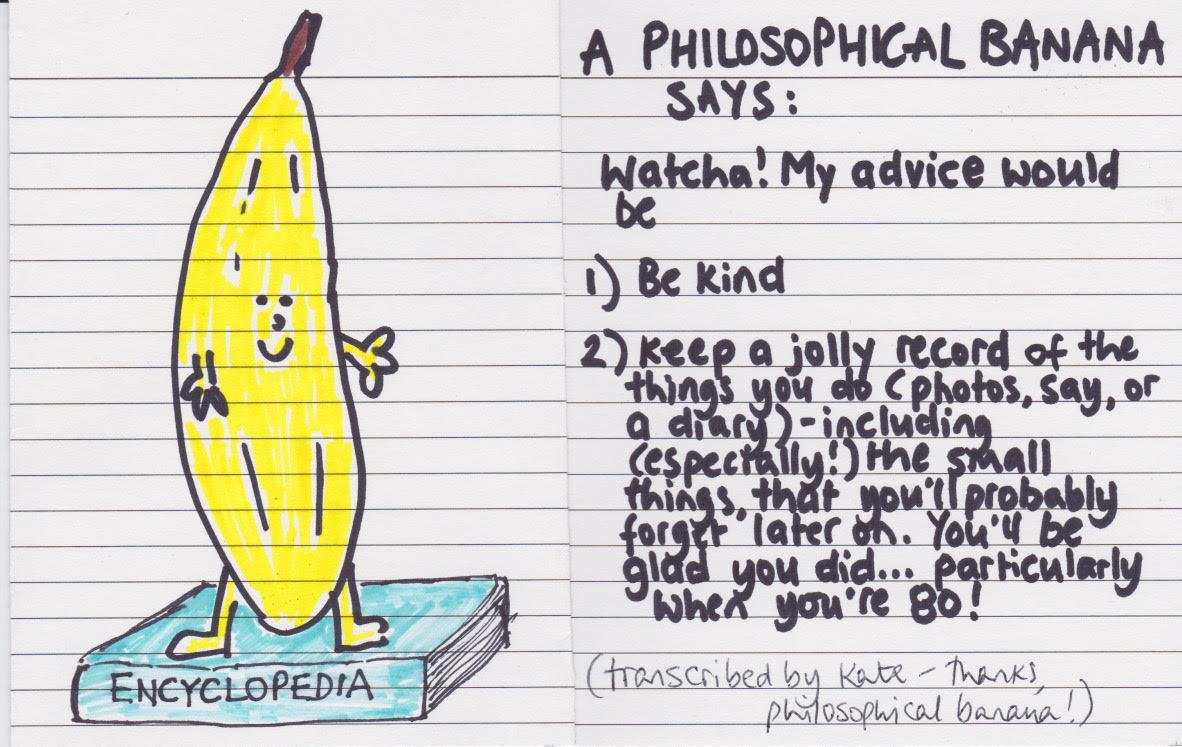 A PHILOSOPHICAL BANANA
SAYS:
Watcha! My advice would
be
1) Be kind
2) keep a jolly record of the
things you do (photos, say, or
a diary) - including
(especially!) the small
things, that you'll probably
forget later on. You'll be
glad you did... particularly
when you're 80!
(transcribed by Kate - thanks,
philosophical banana!)
ENCYCLOPEDIA